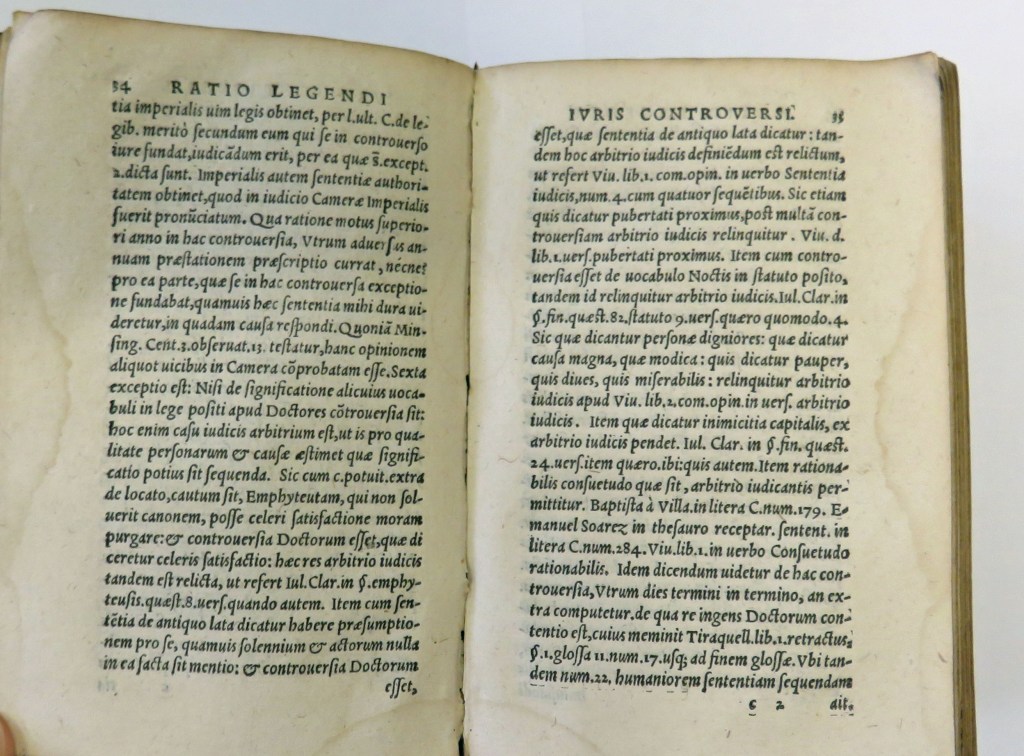 34 RATIO LEGENDI
tia imperialis uim legis obtinet, per l.ult. C.de le-
gib. meritò secundum eum qui se in controuerso
iure fundat,iudicãdum erit, per ea quæ s̄.except.
2.dicta sunt. Imperialis autem sententiæ authori-
tatem obtinet,quod in iudicio Cameræ Imperialis
fuerit pronũciatum. Qua ratione motus superio-
ri anno in hac controuersia, Vtrum aduersus an-
nuam præstationem præscriptio currat, nécne?
pro ea parte,quæ se in hac controuersa exceptio-
ne fundabat,quamuis hæc sententia mihi dura ui-
deretur,in quadam causa respondi. Quoniã Min-
sing. Cent.3.obseruat.13. testatur,hanc opinionem
aliquot uicibus in Camera cõprobatam esse.Sexta
exceptio est: Nisi de significatione alicuius uoca-
buli in lege positi apud Doctores cõtrouersia sit:
hoc enim casu iudicis arbitrium est,ut is pro qua-
litate personarum & causæ æstimet quæ signifi-
catio potius sit sequenda. Sic cum c.potuit.extra
de locato,cautum sit, Emphyteutam, qui non sol-
uerit canonem, posse celeri satisfactione moram
purgare:& controuersia Doctorum esset,quæ di
ceretur celeris satisfactio: hæc res arbitrio iudicis
tandem est relicta, ut refert Iul.Clar.in §.emphy-
teusis.quæst.8.uers.quando autem. Item cum sen-
tẽtia de antiquo lata dicatur habere præsumptio-
nem pro se, quamuis solennium & actorum nulla
in ea facta sit mentio: & controuersia Doctorum
esset,
IVRIS CONTROVERSI. 35
esset,quæ sententia de antiquo lata dicatur : tan-
dem hoc arbitrio iudicis definiẽdum est relictum,
ut refert Viu. lib.1.com.opin. in uerbo Sententia
iudicis,num.4.cum quatuor sequẽtibus. Sic etiam
quis dicatur pubertati proximus,post multã con-
trouersiam arbitrio iudicis relinquitur . Viu. d.
lib.1.uers.pubertati proximus. Item cum contro-
uersia esset de uocabulo Noctis in statuto posito,
tandem id relinquitur arbitrio iudicis.Iul.Clar.in
§.fin.quæst.82.statuto 9.uers.quæro quomodo.4.
Sic quæ dicantur personæ digniores: quæ dicatur
causa magna, quæ modica : quis dicatur pauper,
quis diues, quis miserabilis : relinquitur arbitrio
iudicis apud Viu. lib.2.com.opin.in uers. arbitrio
iudicis. Item quæ dicatur inimicitia capitalis, ex
arbitrio iudicis pendet. Iul. Clar. in §.fin. quæst.
24.uers.item quæro.ibi:quis autem.Item rationa-
bilis consuetudo quæ sit, arbitrio iudicantis per-
mittitur. Baptista à Villa.in litera C.num.179. E-
manuel Soarez in thesauro receptar. sentent. in
litera C.num.284.Viu.lib.1.in uerbo Consuetudo
rationabilis. Idem dicendum uidetur de hac con-
trouersia,Vtrum dies termini in termino, an ex-
tra computetur.de qua re ingens Doctorum con-
tentio est,cuius meminit Tiraquell.lib.1.retractus,
§.1.glossa 11.num.17.usq; ad finem glossæ.Vbi tan-
dem num.22. humaniorem sententiam sequendam
c 2 ait.